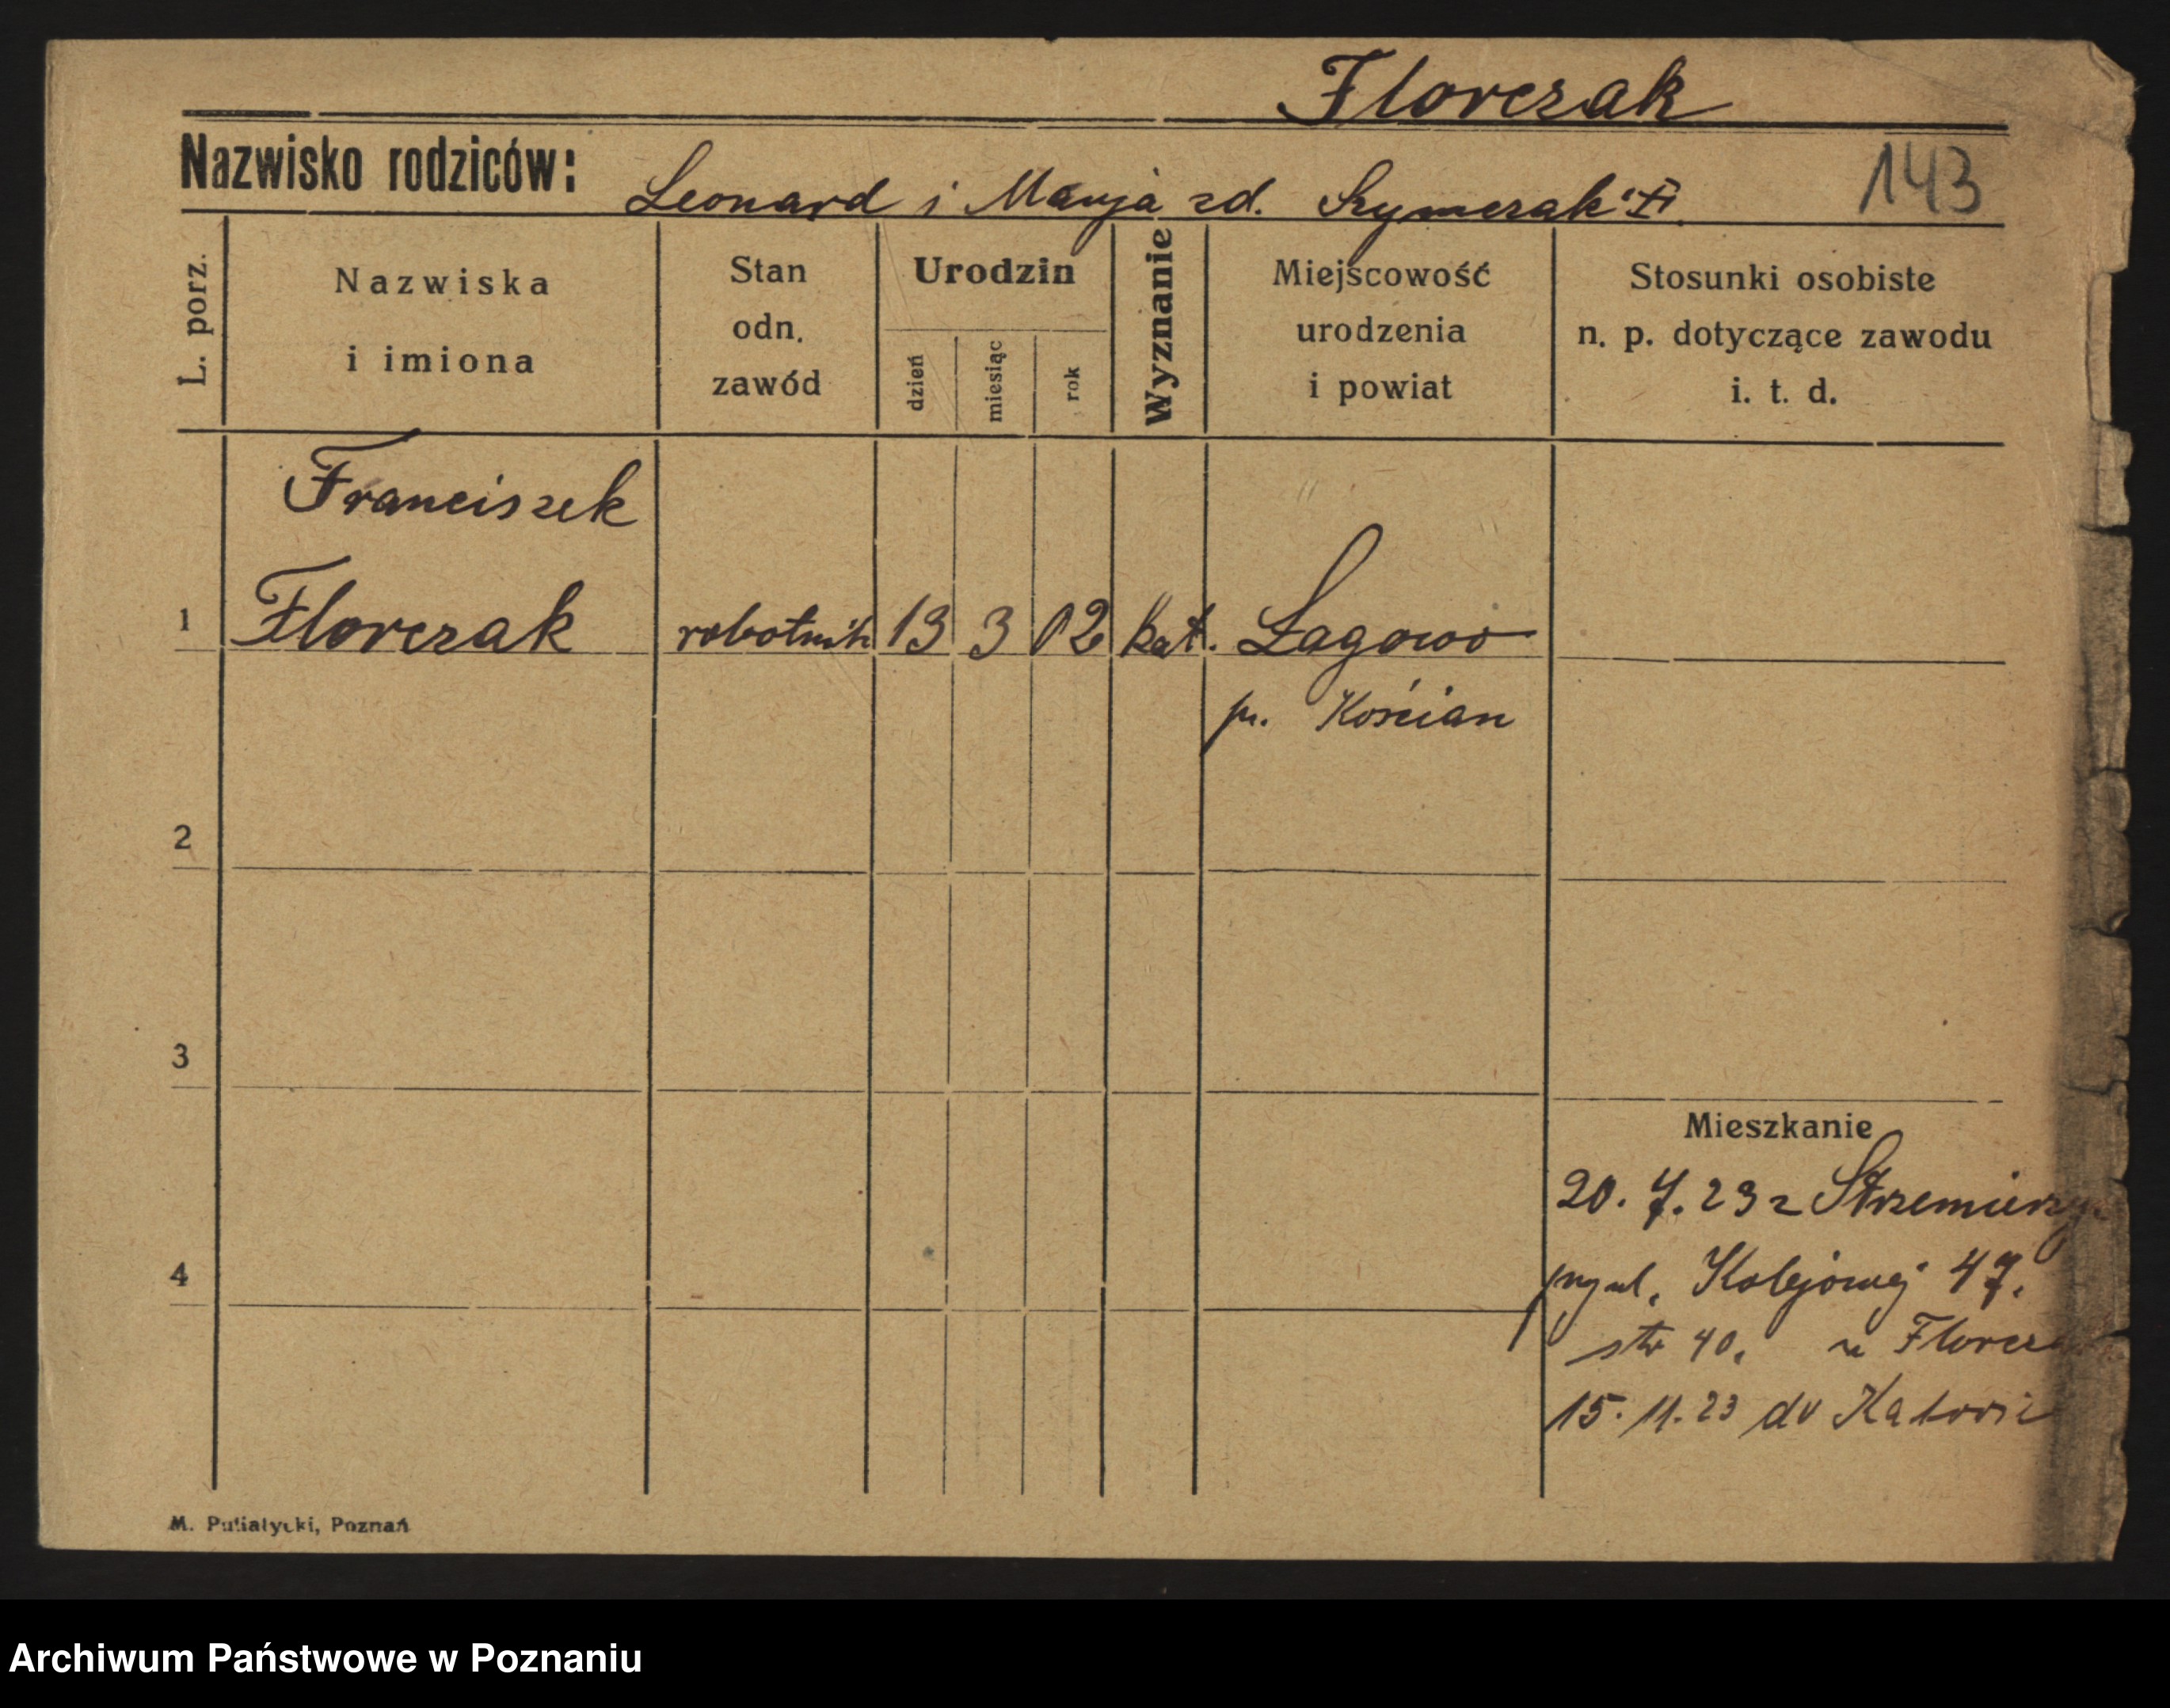 Florczak
Nazwisko rodziców: Leonard i Marja zd. Szymczak
143
L. porz.
Nazwiska
i imiona
Stan
odn.
zawód
Urodzin
dzień
miesiąc
rok
Wyznanie
Miejscowość
urodzenia
i powiat
Stosunki osobiste
n. p. dotyczące zawodu
i. t. d.
Franciszek
1 Florczak robotnik 13 3 02 kat. Łagowo
p. Kościan
2
3
Mieszkanie
20. 7. 23 z
4
ul. Kolejowej 47.
str 40. u
15. 11. 23 do
M. Putiatycki, Poznań
Archiwum Państwowe w Poznaniu